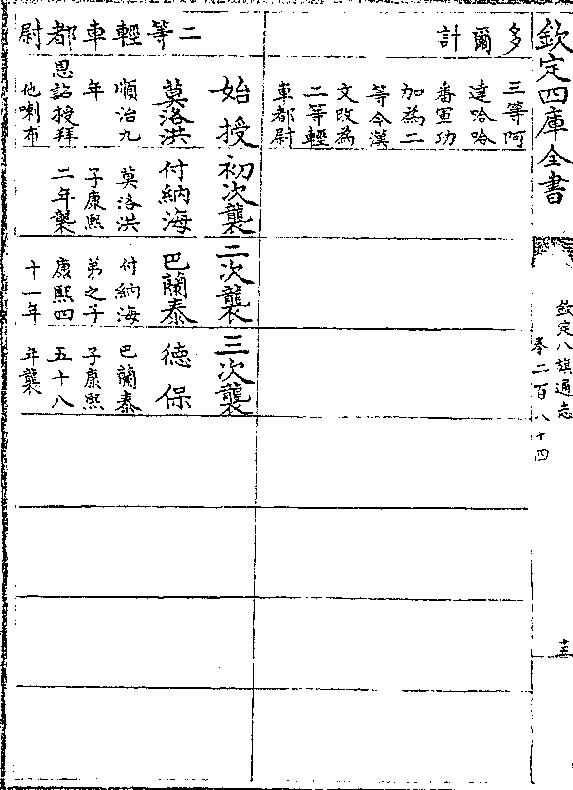 欽定四庫全書
欽定八旗通志
卷二百八十四
十五
多爾計
三等阿
達哈哈
番軍功
加為二
等今漢
文改為
二等輕
車都尉
二等輕車都尉
始授
莫洛洪
順治九
年
恩詔授拜
他喇布
初次襲
付納海
莫洛洪
子康熙
二年襲
二次襲
巴蘭泰
付納海
弟之子
康熙四
十一年
三次襲
德保
巴蘭泰
子康熙
五十八
年襲